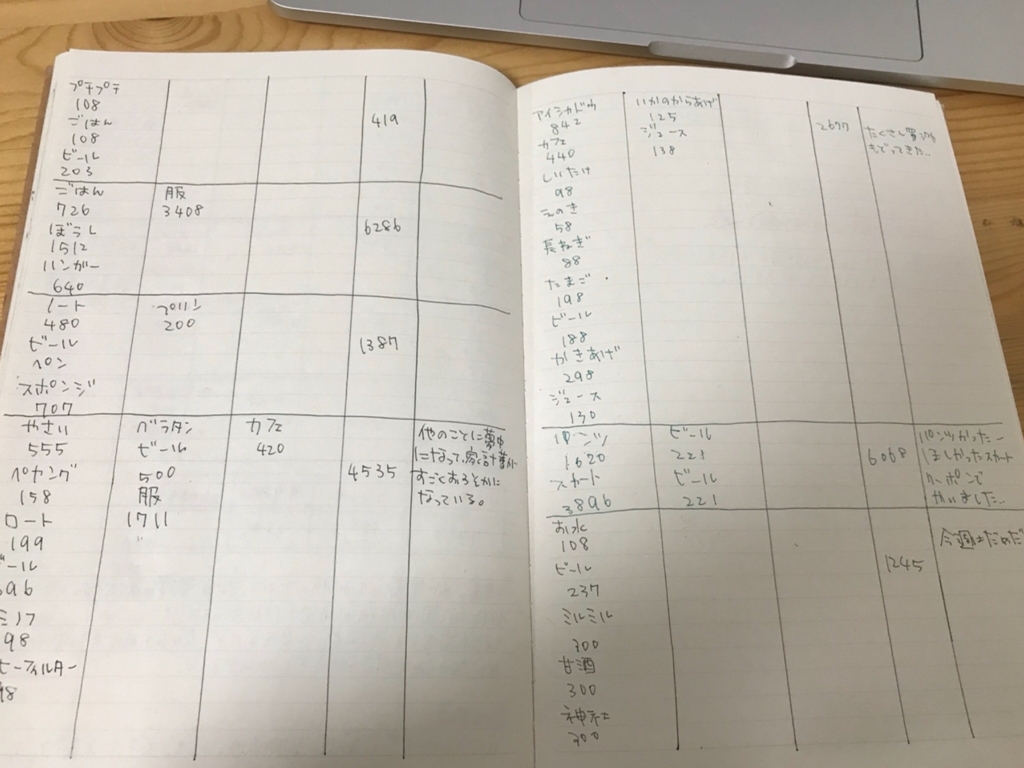 プチプチ
108
ごはん
108
ビール
203
419
ごはん
726
ぼうし
1512
ハンガー
640
服
3408
6286
ノート
480
ビール
ペン
スポンジ
707
プリン
200
1387
やさい
555
ペヤング
158
ロート
199
ール
96
98
ヒーフィルター
98
ベラダン
ビール
500
服
1711
〃
カフェ
420
4535
他のことに夢中
になって家計簿が
すごくおろそかに
なっている。
アイシャドウ
842
カフェ
440
しいたけ
98
えのき
58
長ねぎ
88
たまご
198
ビール
188
かきあげ
298
ジュース
130
いかのからあげ
125
ジュース
138
2697
たくさん
もどってきた…
パンツ
1620
スカート
3896
ビール
221
ビール
221
6068
パンツかったー
ほしかったスカート
クーポンで
かいました…
お水
108
ビール
237
ミルミル
300
甘酒
300
神社
300
1245
今週はだめだ